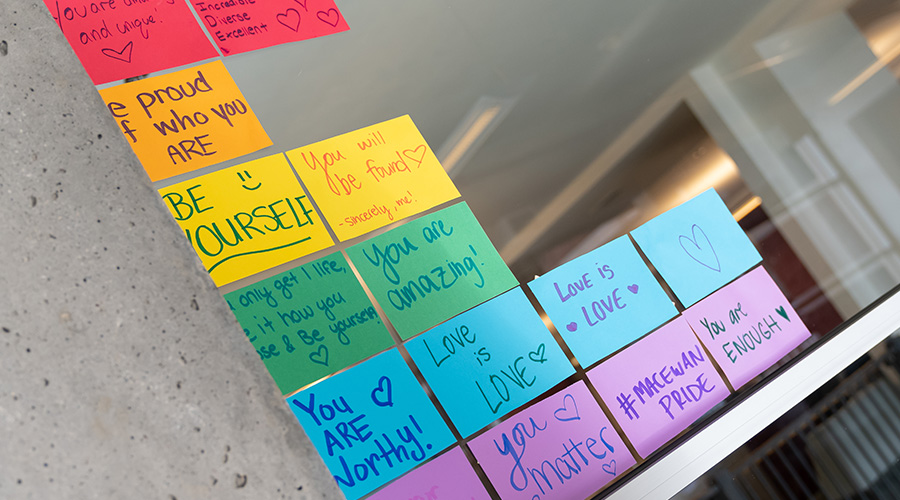 You are
and unique.
Incredible
Diverse
Excellent
proud
who you
ARE
BE
YOURSELF
You will
be found
-sincerely, me!
only get 1 life,
it how you
& Be yourself.
You are
amazing!
You
ARE
Worthy!
Love
is
LOVE
Love is
LOVE
you
matter
#MACEWAN
PRIDE
You are
ENOUGH